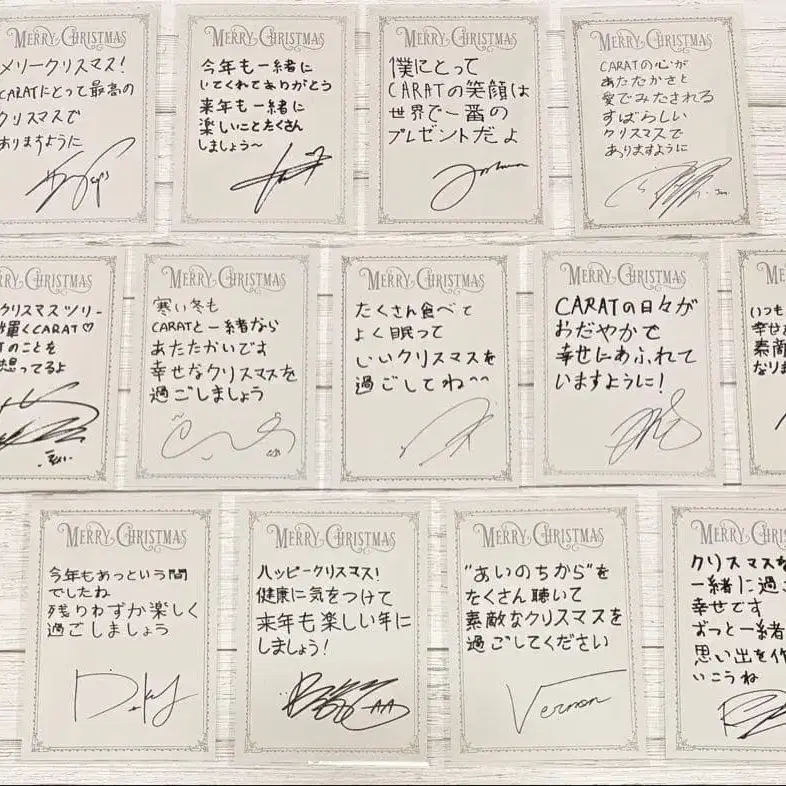 MERRY CHRISTMAS
メリークリスマス!
CARATにとって最高の
クリスマスで
ありますように
MERRY CHRISTMAS
今年も一緒に
いてくれてありがとう
来年も一緒に
楽しいことたくさん
しましょう〜
MERRY CHRISTMAS
僕にとって
CARATの笑顔は
世界で一番の
プレゼントだよ
Joshua
MERRY CHRISTMAS
CARATの心が
あたたかさと
愛でみたされる
すばらしい
クリスマスで
ありますように
MERRY CHRISTMAS
クリスマスツリー
輝くCARAT♡
のことを
想ってるよ
MERRY CHRISTMAS
寒い冬も
CARATと一緒なら
あたたかいです
幸せなクリスマスを
過ごしましょう
MERRY CHRISTMAS
たくさん食べて
よく眠って
いいクリスマスを
過ごしてね〜〜
MERRY CHRISTMAS
CARATの日々が
おだやかで
幸せにあふれて
いますように!
いつも
幸せ
素敵
なりま
MERRY CHRISTMAS
今年もあっという間
でしたね
残りわずか楽しく
過ごしましょう
MERRY CHRISTMAS
ハッピークリスマス!
健康に気をつけて
来年も楽しい年に
しましょう!
MERRY CHRISTMAS
"あいのちから"を
たくさん聴いて
素敵なクリスマスを
過ごしてください
Vernon
MERRY CHRIS
クリスマスを
一緒に過ご
幸せです
ずっと一緒
思い出を作
いこうね